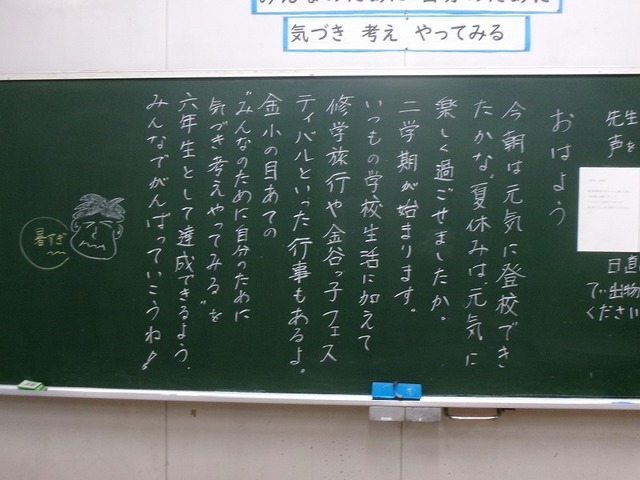 みんなのために 自分のために
気づき 考え やってみる
先生
声を
日直
で出物
ください
おはよう
今朝は元気に登校でき
たかな。夏休みは、元気に
楽しく過ごせましたか。
二学期が始まります。
いつもの学校生活に加えて
修学旅行や金谷っ子フェス
ティバルといった行事もあるよ。
金小の目あての
“みんなのために自分のために
気づき考えやってみる”を
六年生として達成できるよう、
みんなでがんばっていこうね!
暑すぎ